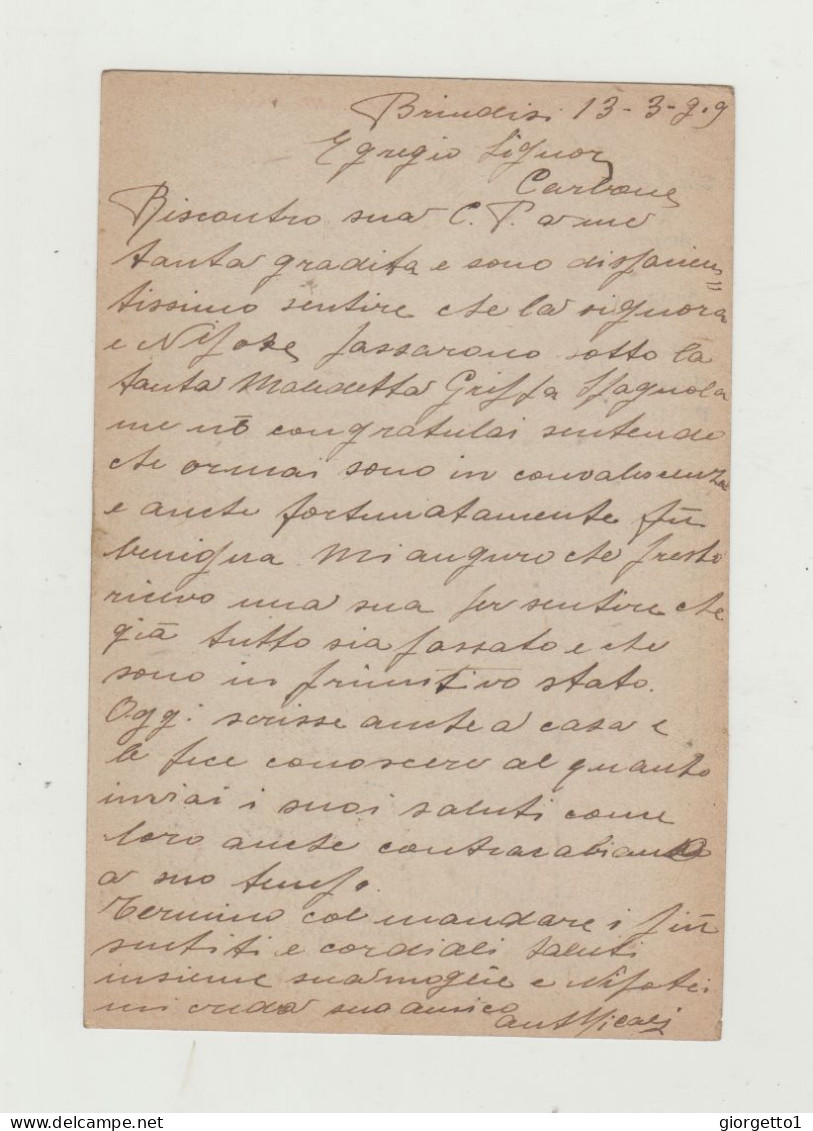 Brindisi 13-3-9.9
Egregio Signor
Carbone
Riscontro sua C. P. a me
tanta gradita e sono dispiacen=
tissimo sentire che la signora
e Nipote passarono sotto la
tanta Maledetta Griffa Spagnola
me nē congratulai sentendo
che ormai sono in convalescenza
e anche fortunatamente fù
benigna. Mi auguro che presto
ricevo una sua per sentire che
già tutto sia passato e che
sono in primitivo stato.
Oggi scrisse anche a casa e
le fece conoscere al quanto
inviai i suoi saluti come
loro anche contracabiando
a suo tempo.
Termino col mandare i più
sentiti e cordiali saluti
insieme sua moglie e Nipoti
mi creda suo amico
giorgetto1